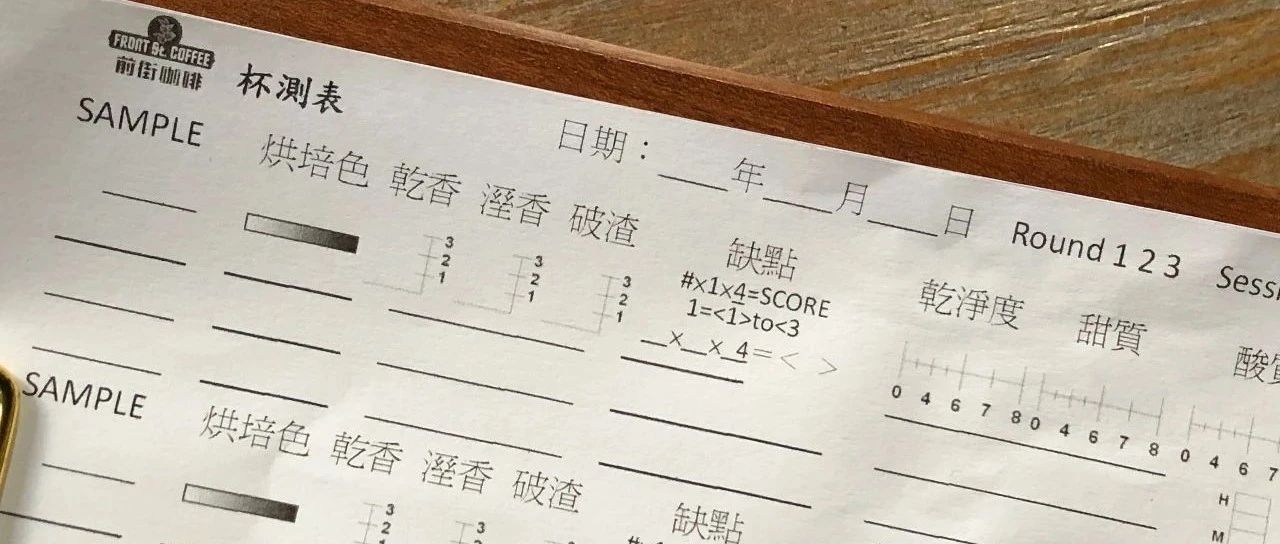 FRONT St. COFFEE
前街咖啡
杯測表
日期：___年___月___日 Round 1 2 3
SAMPLE 烘培色 乾香 溼香 破渣 缺點 乾淨度 甜質
3 3 3
2 2 2
1 1 1
#x1x4=SCORE
1=<1>to<3
__x__x_4=< >
0 4 6 7 8 0 4 6 7 8 0 4 6 7
H
M
SAMPLE 烘培色 乾香 溼香 破渣 缺點
3 3
2 2